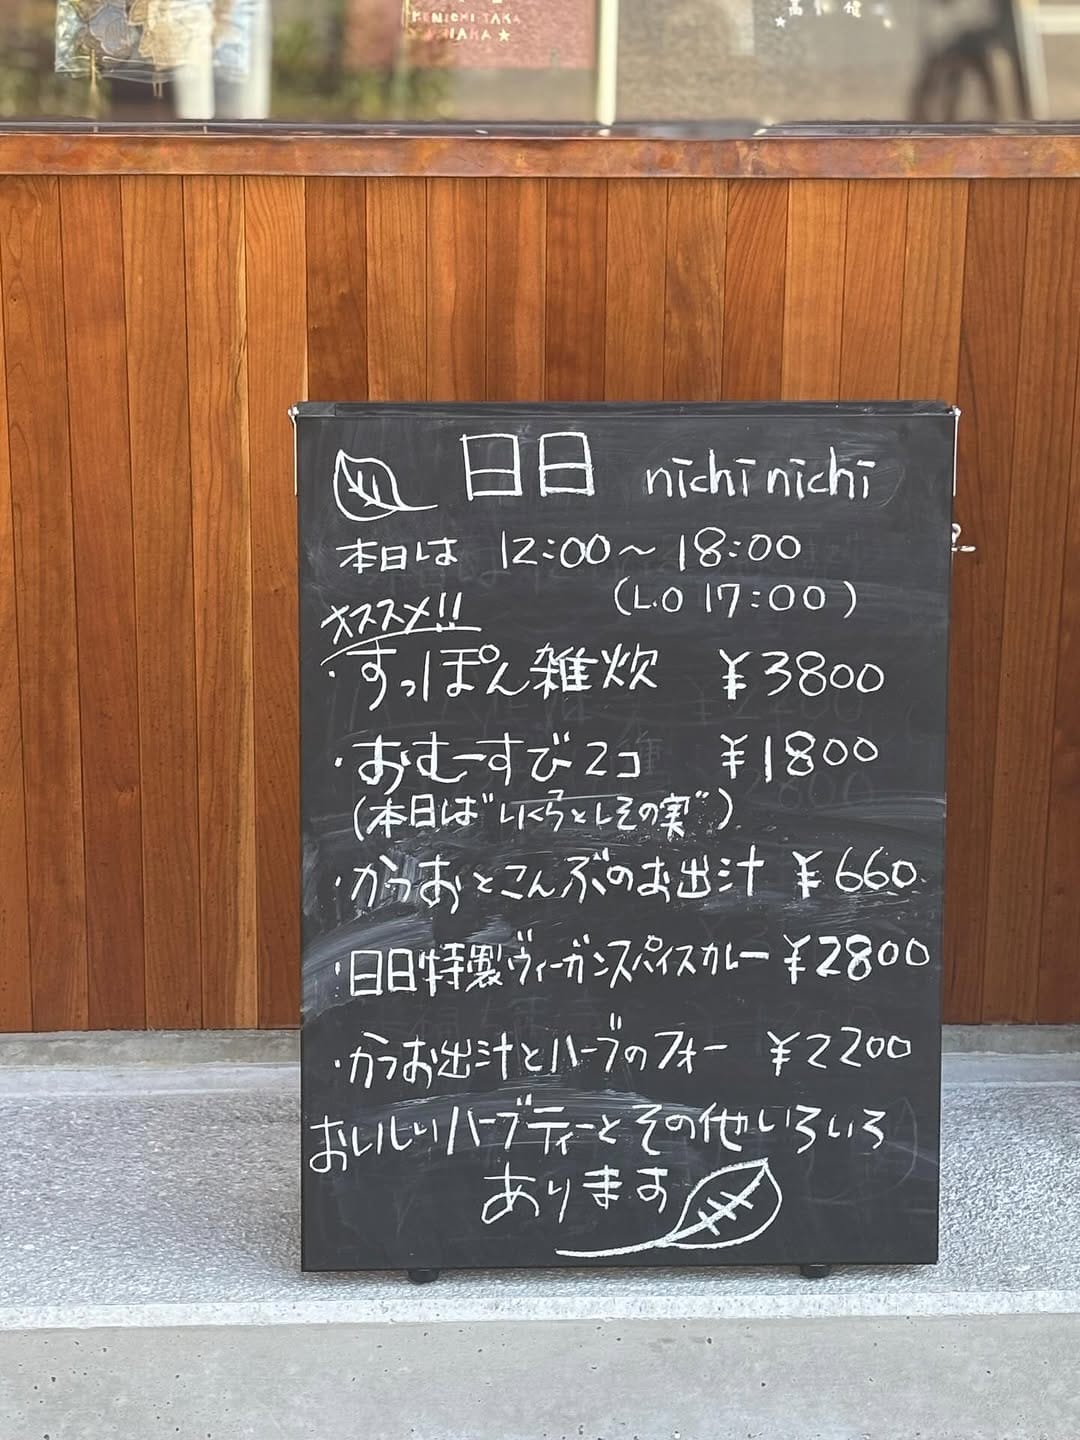 KENICHI TAKA
日日 nichi nichi
本日は 12:00〜18:00
(L.O 17:00)
オススメ!!
・すっぽん雑炊 ¥3800
・おむーすび2コ ¥1800
(本日は"いくらとしその実")
・かつおとこんぶのお出汁 ¥660
・日日特製ヴィーガンスパイスカレー ¥2800
・かつお出汁とハーブのフォー ¥2200
おいしいハーブティーとその他いろいろ
あります